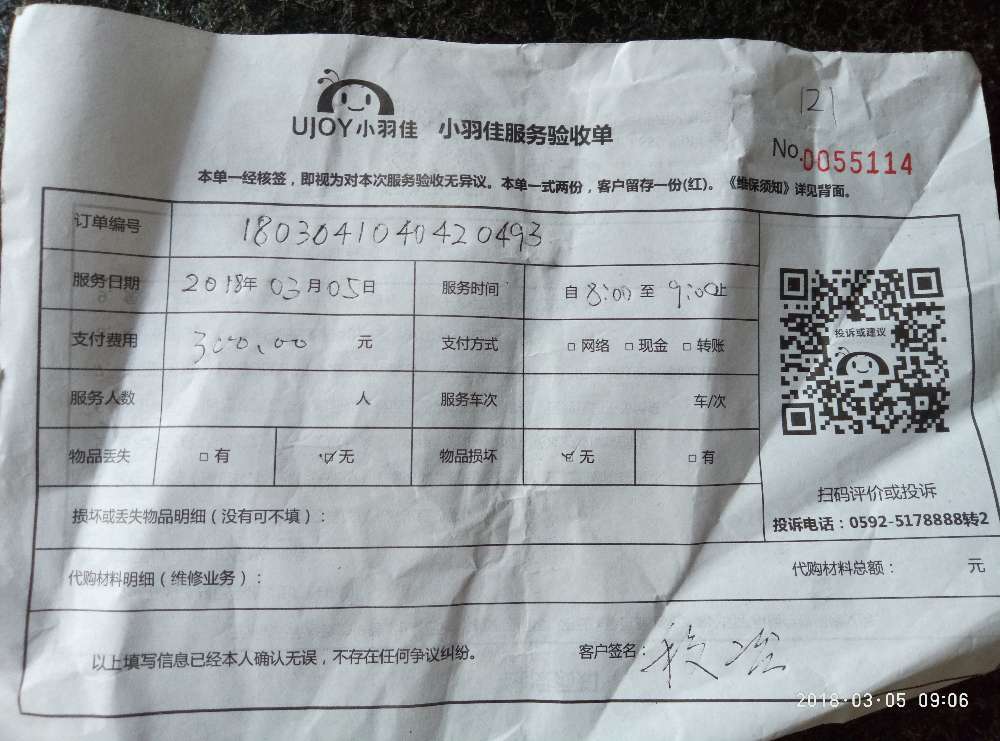 121
UJOY小羽佳 小羽佳服务验收单
No.0055114
本单一经核签，即视为对本次服务验收无异议。本单一式两份，客户留存一份(红)。《维保须知》详见背面。
订单编号 1803041040420493
服务日期 2018年03月05日 服务时间 自8:00至9:00止
支付费用 300.00 元 支付方式 □ 网络 □ 现金 □ 转账
投诉或建议
服务人数 人 服务车次 车/次
物品丢失 □ 有 ☑ 无 物品损坏 ☑ 无 □ 有
扫码评价或投诉
损坏或丢失物品明细（没有可不填）：
投诉电话：0592-5178888转2
代购材料明细（维修业务）： 代购材料总额： 元
以上填写信息已经本人确认无误，不存在任何争议纠纷。 客户签名：
2018·03·05 09:06